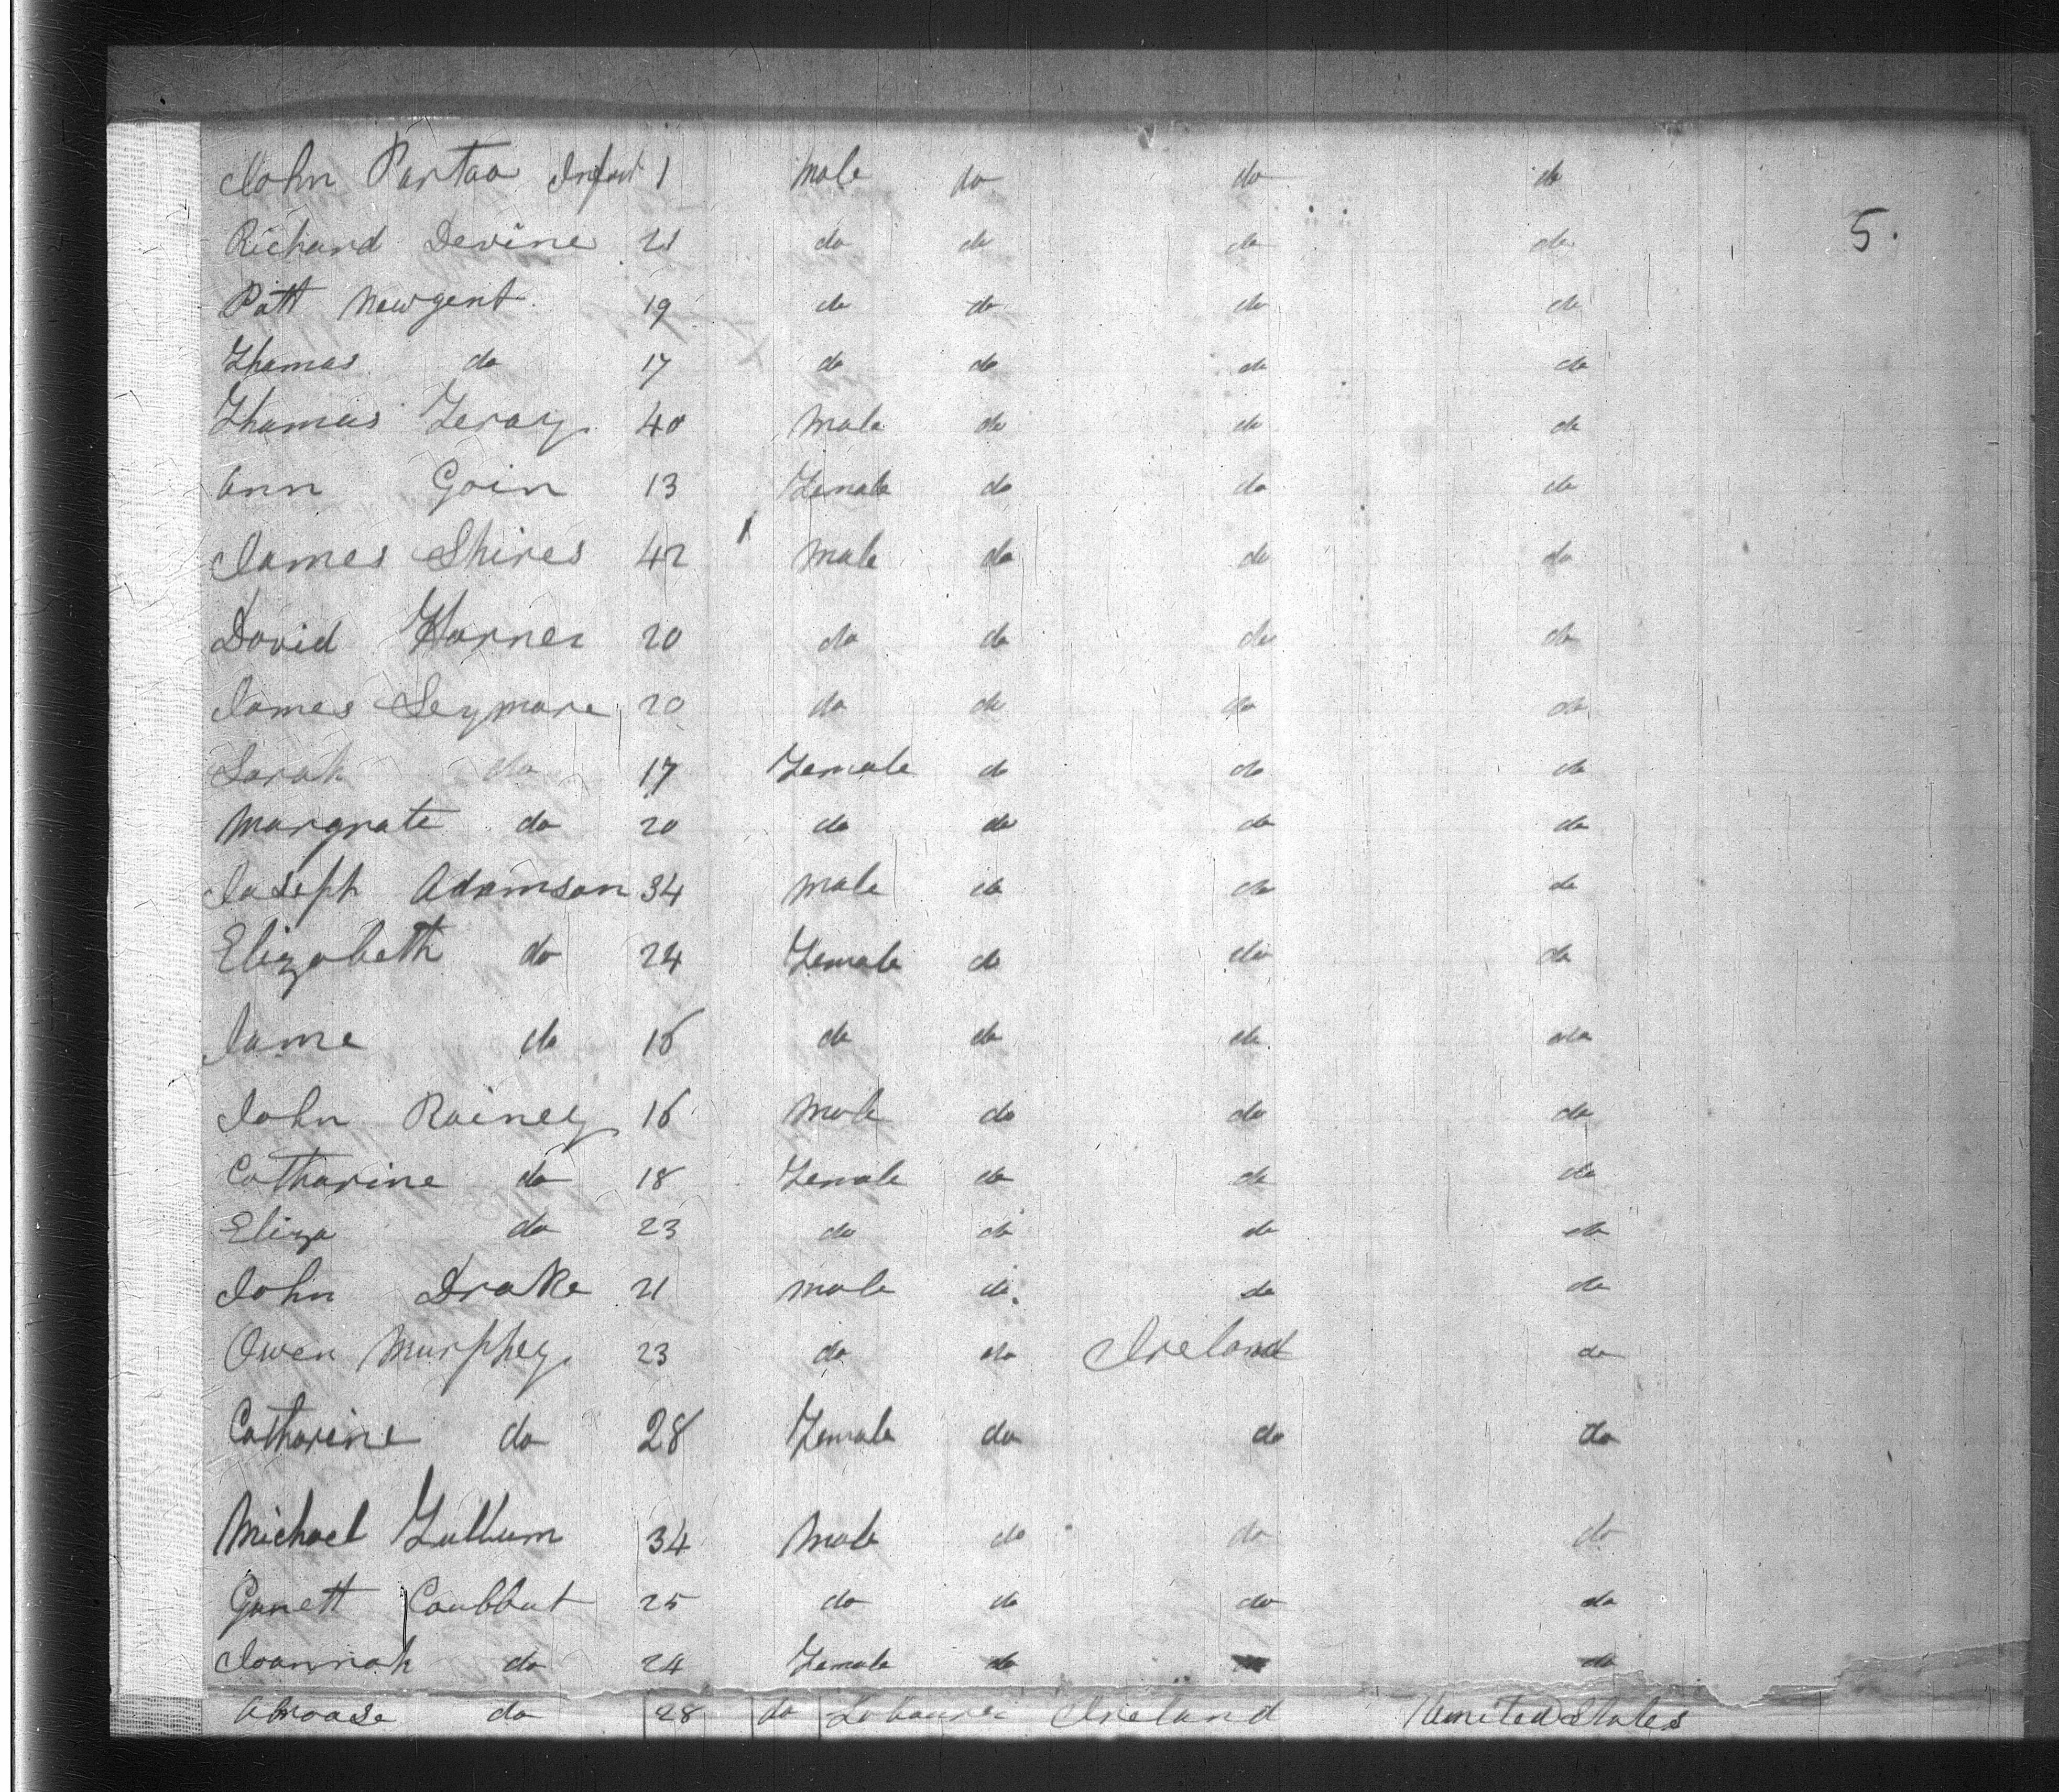 John Partao Infant 1 male do do do
5.
Richard Devine 21 do do do do
Patt Newgent 19 do do do do
Thomas do 17 do do do do
Thomas Leray 40 Male do do do
Ann Goin 13 Female do do do
James Shires 42 Male do do do
David Harner 20 do do do do
James Seymore 20 do do do do
Sarah do 17 Female do do do
Margrate do 20 do do do do
Joseph Adamson 34 Male do do do
Elizabeth do 24 Female do do do
Jame do 16 do do do do
John Rainey 16 Male do do do
Catharine do 18 Female do do do
Eliza do 23 do do do do
John Drake 21 male do do do
Owen Murphey 23 do do Ireland do
Catharine do 28 Female do do do
Michael 34 Male do do do
Coubbut 25 do do do do
Joannah do 24 Female do do
do 28 do Labourer Ireland United States